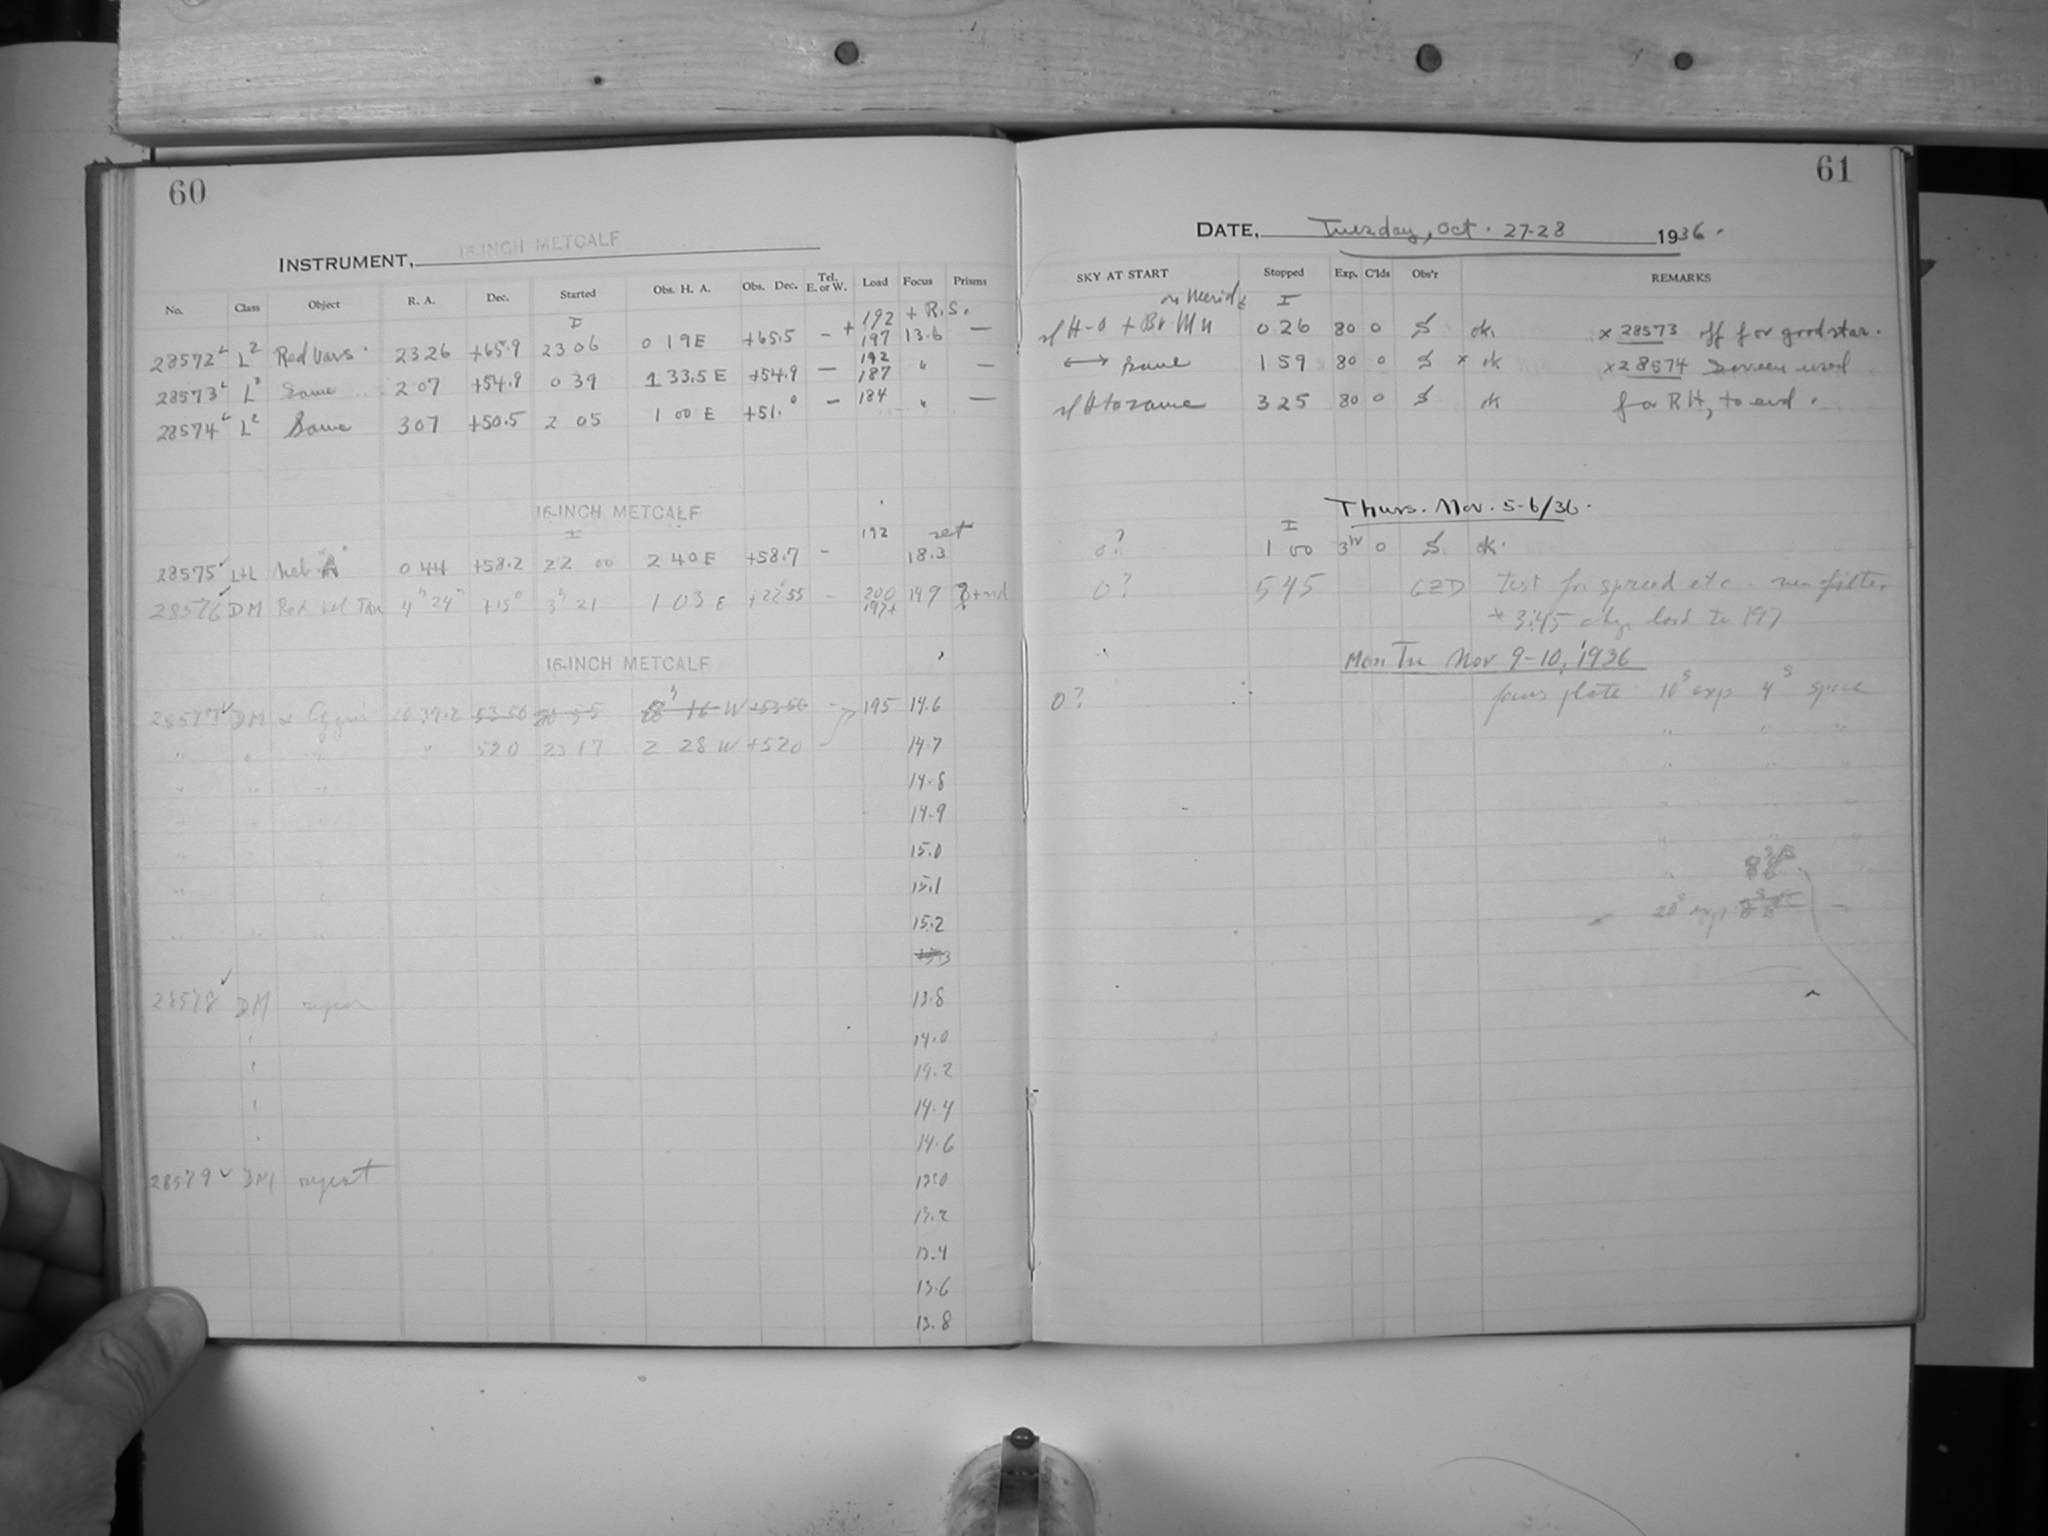 60
INSTRUMENT, 16-INCH METCALF
No. Class Object R. A. Dec. Started Obs. H. A. Obs. Dec. Tel. E. or W. Load Focus Prisms
I 192 + R.S.
28572 L2 Red Vars. 23 26 +65.9 23 06 0 19 E +65.5 - + 197 13.6 —
28573 L2 Same 2 07 +54.9 0 39 1 33.5 E +54.9 — 192 187 " —
28574 L2 Same 3 07 +50.5 2 05 1 00 E +51.0 - 184 " —
16-INCH METCALF
I 192 set
28575 L+L Neb "A" 0 44 +58.2 22 00 2 40 E +58.7 - 18.3
28576 DM Red Vel Tau 4h 24m +15° 3h 21 1 03 E - 200 197+ 14.9
16-INCH METCALF
28577 DM α Cygni 20 39.2 53 50 20 55 16 W +53 50 - 195 14.6
" " " " 520 23 17 2 28 W +520 - 14.7
" " " 14.8
14.9
15.0
15.1
15.2
15.3
28578 DM repeat 13.8
14.0
14.2
14.4
14.6
28579 DM repeat 13.0
13.2
13.4
13.6
13.8
61
DATE, Tuesday, Oct. 27-28 1936.
SKY AT START Stopped Exp. C'lds Obs'r REMARKS
on Merid. I
H-0 + Br. Mn 0 26 80 0 S ok x 28573 off for good star.
⟷ same 1 59 80 0 S x ok x 28574 Screen used
H to same 3 25 80 0 S ok for RH, to end.
Thurs. Nov. 5-6/36.
I
0? 1 00 3hr 0 S ok.
0? 545 test for speed etc. filter
* 3:45 chg. load to 197
Mon Tu Nov 9-10, 1936
0? focus plate 10s exp 4s space
" " "
" " "
20s exp